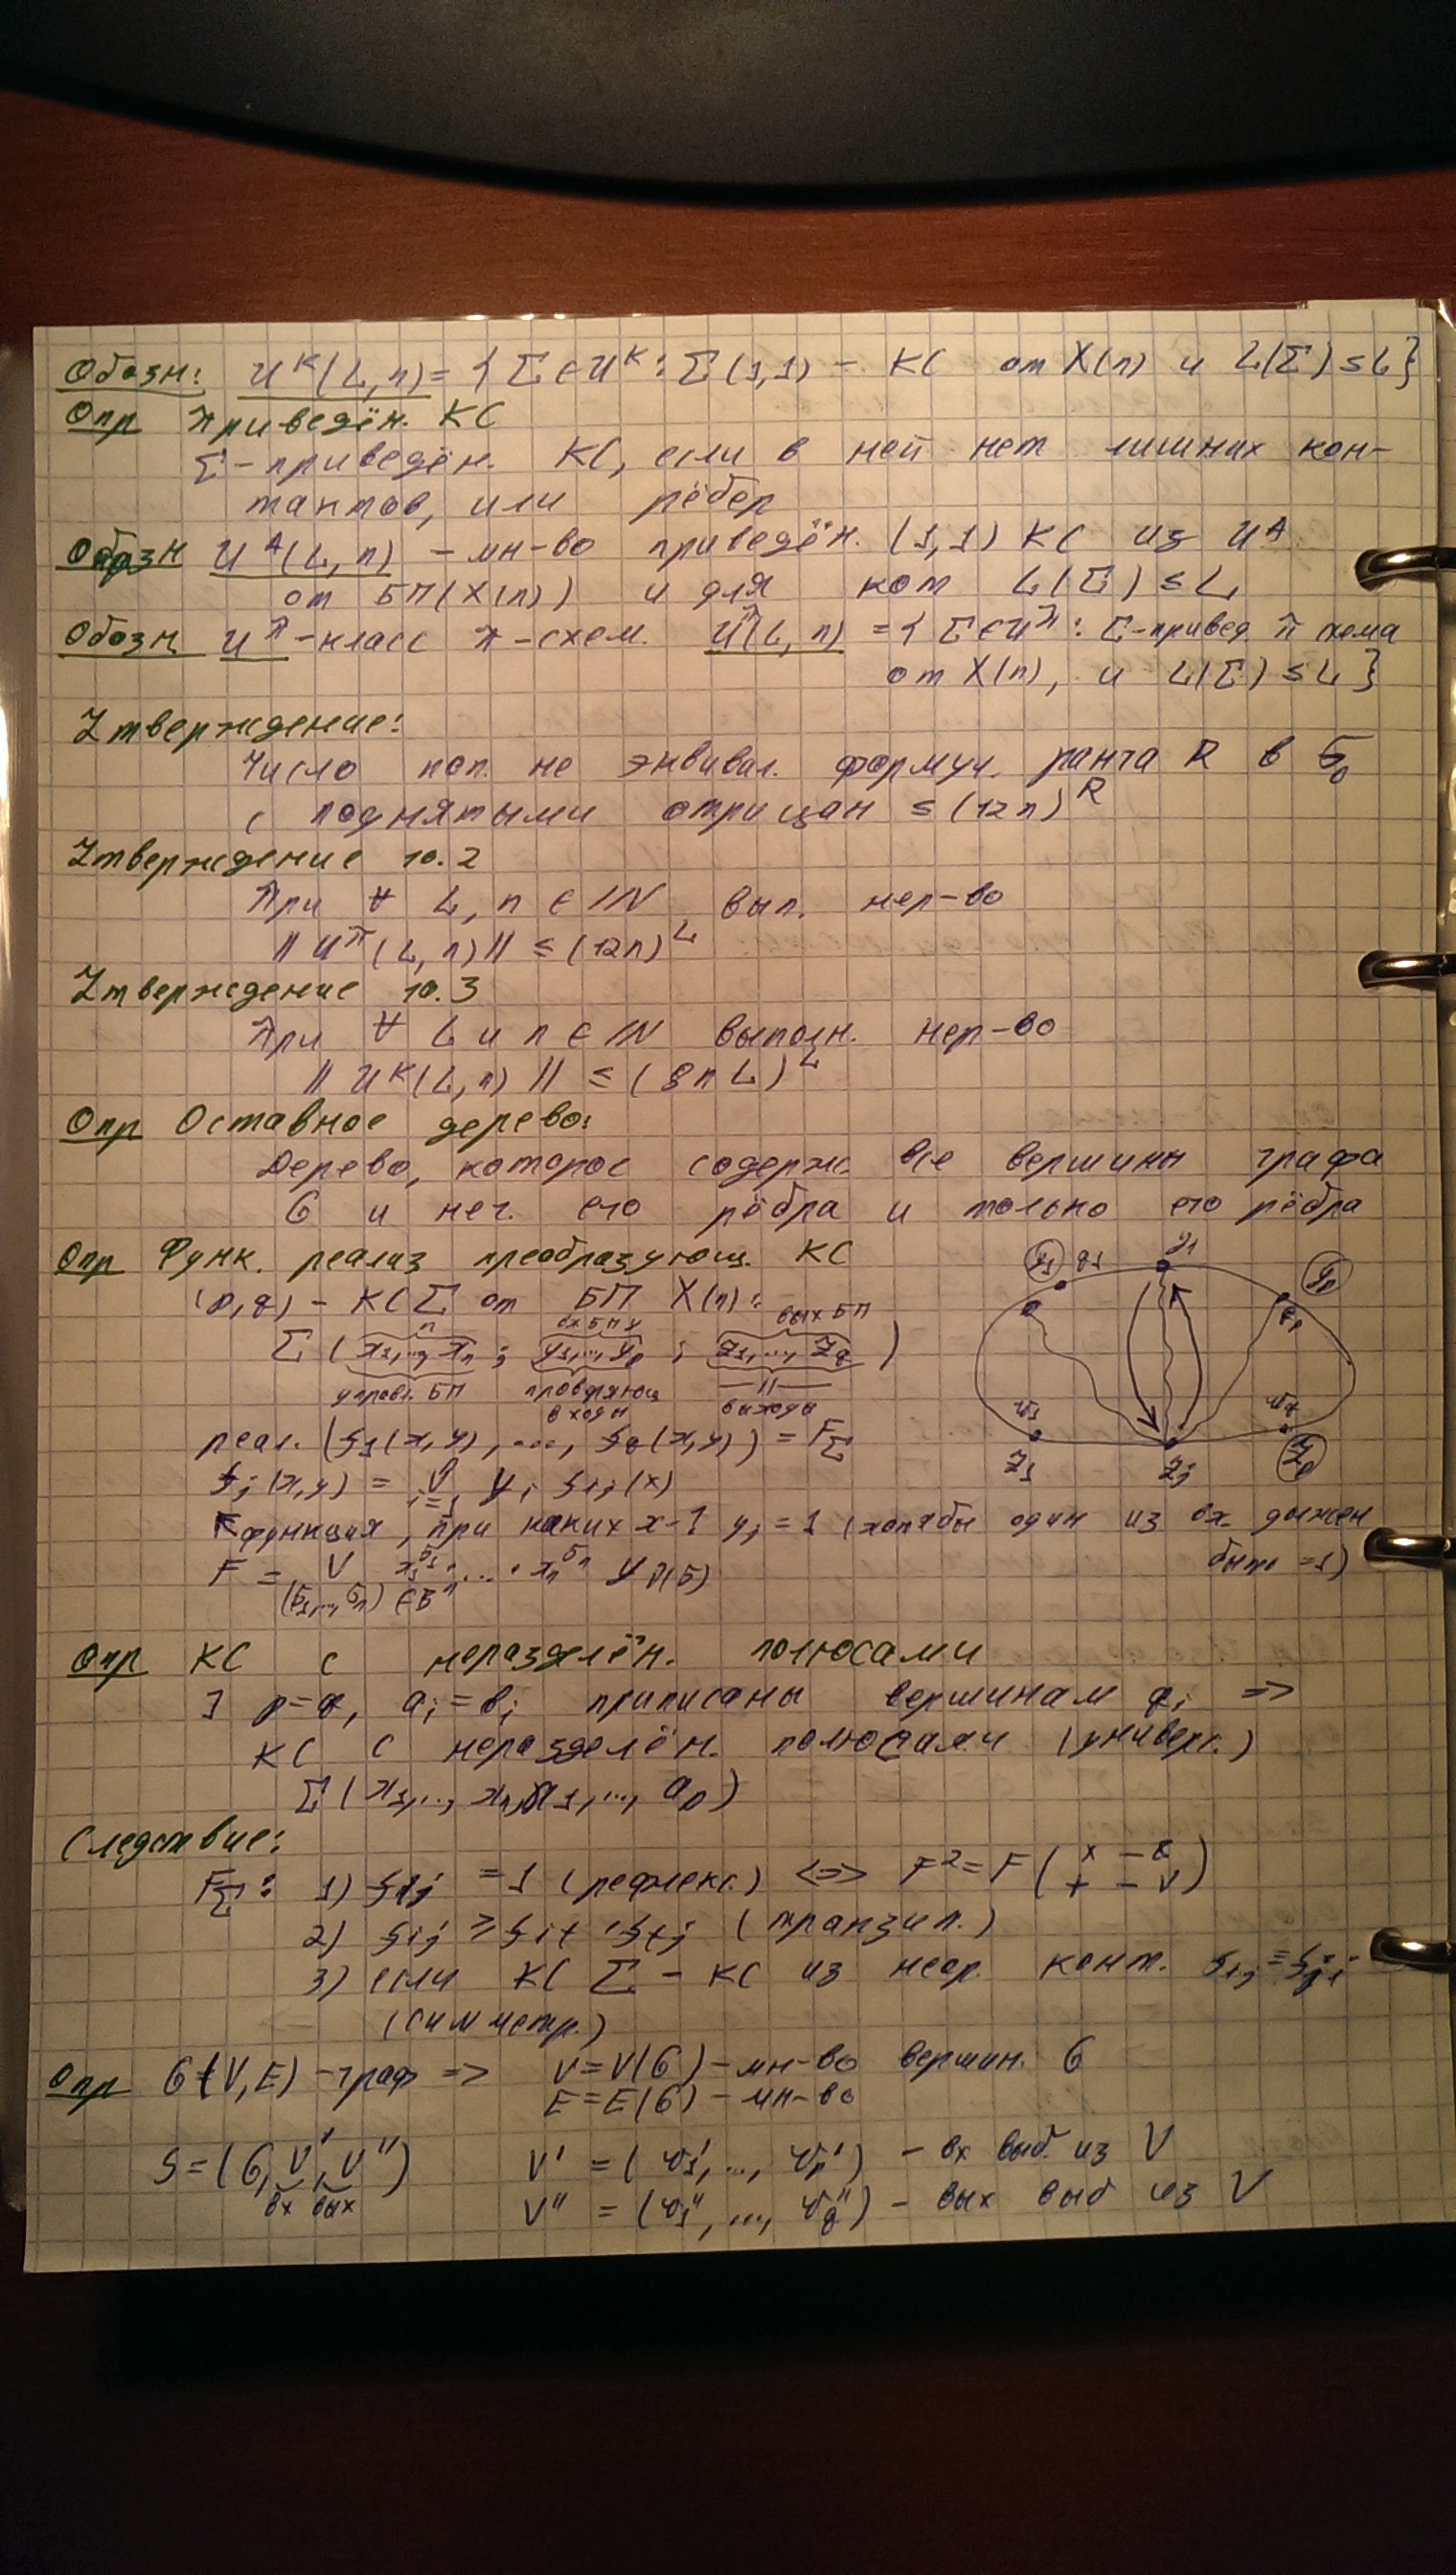 Обозн: U^K(L,n) = { Σ ∈ U^K : Σ (1,1) - КС от X(n) и L(Σ) ≤ L }
Опр Приведён. КС
Σ - приведён. КС, если в ней нет лишних кон-
тактов, или рёбер
Обозн U^A(L,n) - мн-во приведён. (1,1) КС из U^A
от БП(X(n)) и для кот L(Σ) ≤ L
Обозн U^π - класс π-схем. U^π(L,n) = { Σ ∈ U^π : Σ-привед. π схема
от X(n), и L(Σ) ≤ L }
Утверждение:
Число поп. не эквивал. формул. ранга R в Б₀
с поднятыми отрицан ≤ (12n)^R
Утверждение 10.2
При ∀ L, n ∈ IN, вып. нер-во
|| U^π(L,n) || ≤ (12n)^L
Утверждение 10.3
При ∀ L и n ∈ IN выполн. нер-во
|| U^K(L,n) || ≤ (8nL)^L
Опр Оставное дерево:
Дерево, которое содерж. все вершины графа
G и нек. его рёбра и только его рёбра
Опр Функ. реализ преобразующ. КС
(p,q) - КС Σ от БП X(n):
n вх БП y вых БП
Σ ( x₁,..., xₙ ; y₁,..., y_p ; z₁,..., z_q )
управл. БП проводяющ —//—
входы выходы
реал. (f₁(x,y), ..., f_q(x,y)) = F_Σ
f_j(x,y) = V_{i=1}^p y_i f_ij(x)
функция, при каких x-1 y_j = 1 (хотябы один из вх. дыжен
быть =1)
F = V_{(σ₁,...,σₙ) ∈ Bⁿ} x₁^σ₁ · ... · xₙ^σₙ y_ν(σ)
Опр КС с неразделён. полюсами
] p=q, a_i = b_i приписаны вершинам q_i =>
КС с неразделён. полюсами (универс.)
Σ(x₁,..., xₙ, a₁,..., a_p)
Следствие:
F_Σ: 1) f_ij = 1 (рефлекс.) <=> F² = F ( x - & + - V )
2) f_ij ≥ f_it · f_tj (транзит.)
3) если КС Σ - КС из неор. конт. f_ij = f_ji
(симметр.)
Опр G=(V,E) - граф => V=V(G) - мн-во вершин. G
E=E(G) - мн-во
S = (G, V', V'') V' = (v₁', ..., v_p') - вх выб. из V
вх вых V'' = (v₁'', ..., v_q'') - вых выб из V